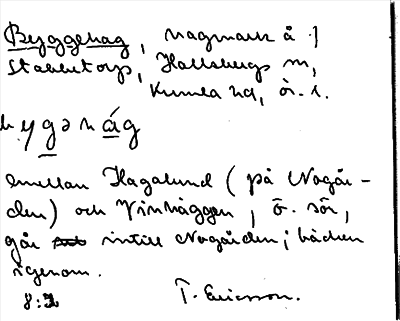 Byggehag, vagmark å f
Stabbetorp, Hallsbergs sn,
Kumla hd, ör. l.
bygəhág
emellan Hagalund (på Nogår-
den) och Vinhäggen, ö. sör,
går intill Nogården; bäcken
igenom.
8:2 T. Ericsson.